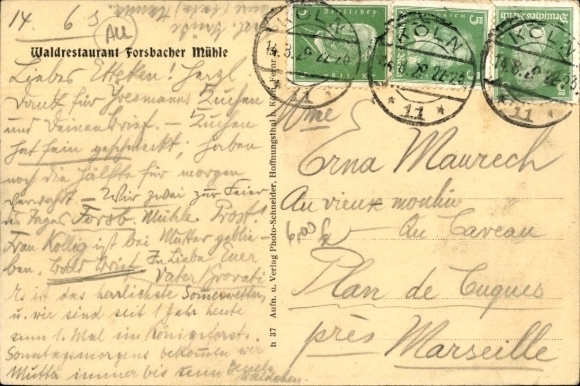 14. 6
AU
Waldrestaurant Forsbacher Mühle
Liebes Etteken! Herzl
Dank für Kuchen
und Deinen Brief. – Kuchen
hat fein geschmeckt; haben
noch die Hälfte für morgen
– Wir zwei zur Feier
des Tages Forsb. Mühle Prost!
Frau Kollig ist bei Mutter geblie-
ben. Bald Brief. In Liebe Euer
Vater
Es ist das herrlichste Sommerwetter,
u. wir sind seit 1 Jahr heute
zum 1. Mal im Königsforst.
Sonntagsmorgens bekommen wir
Mutter immer bis zum
h 37 Aufn. u. Verlag Photo-Schneider, Hoffnungsthal b. Köln, Fernr.
Deutsches Reich
5
KÖLN
* 11 *
5
KÖLN
* 11 *
Deutsches Reich
KÖLN
* 11 *
Mme
Erna Maurech
Au vieux moulin
Au Caveau
6,00
Plan de Cuques
près
Marseille